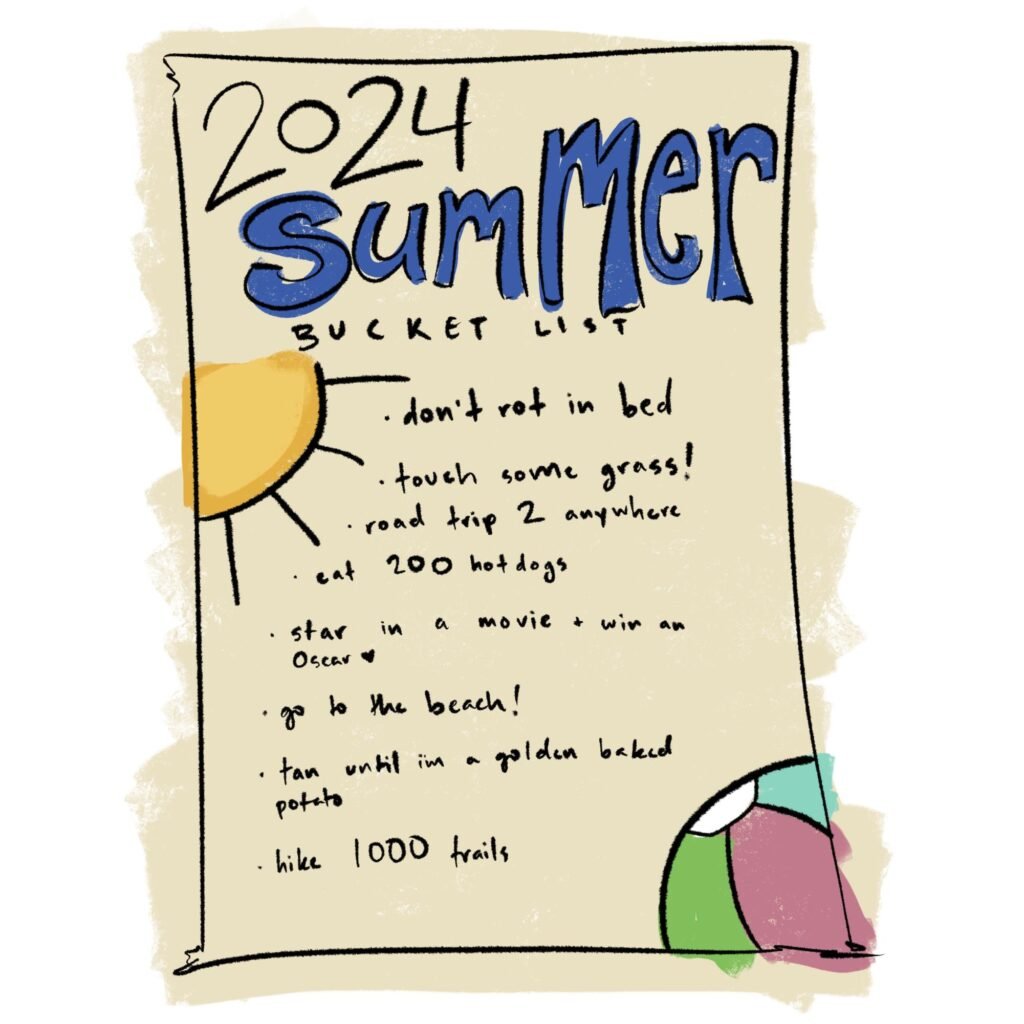 2024
summer
BUCKET LIST
· don't rot in bed
· touch some grass!
· road trip 2 anywhere
· eat 200 hotdogs
· star in a movie + win an
Oscar ♥
· go to the beach!
· tan until im a golden baked
potato
· hike 1000 trails